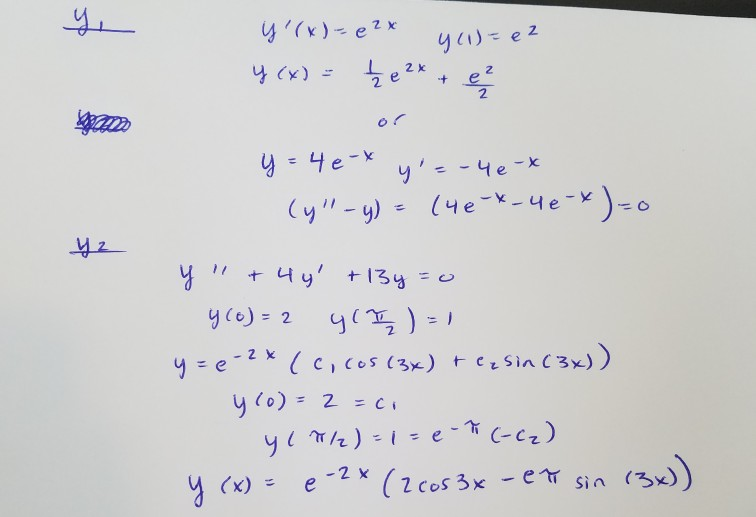 y₁
y'(x) = e^2x y(1) = e²
y(x) = 1/2 e^2x + e²/2
or
y = 4e^-x y' = -4e^-x
(y'' - y) = (4e^-x - 4e^-x) = 0
y₂
y'' + 4y' + 13y = 0
y(0) = 2 y(π/2) = 1
y = e^-2x (c₁ cos(3x) + c₂ sin(3x))
y(0) = 2 = c₁
y(π/2) = 1 = e^-π (-c₂)
y(x) = e^-2x (2cos3x - eπ sin (3x))